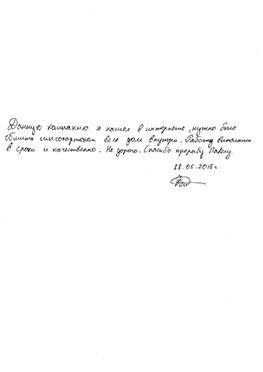 Данную компанию я нашел в интернете, нужно было
обшить гипсокартоном весь дом внутри. Работу выполнили
в сроки и качественно. Не дорого. Спасибо прорабу Павлу.
18.05.2015г.